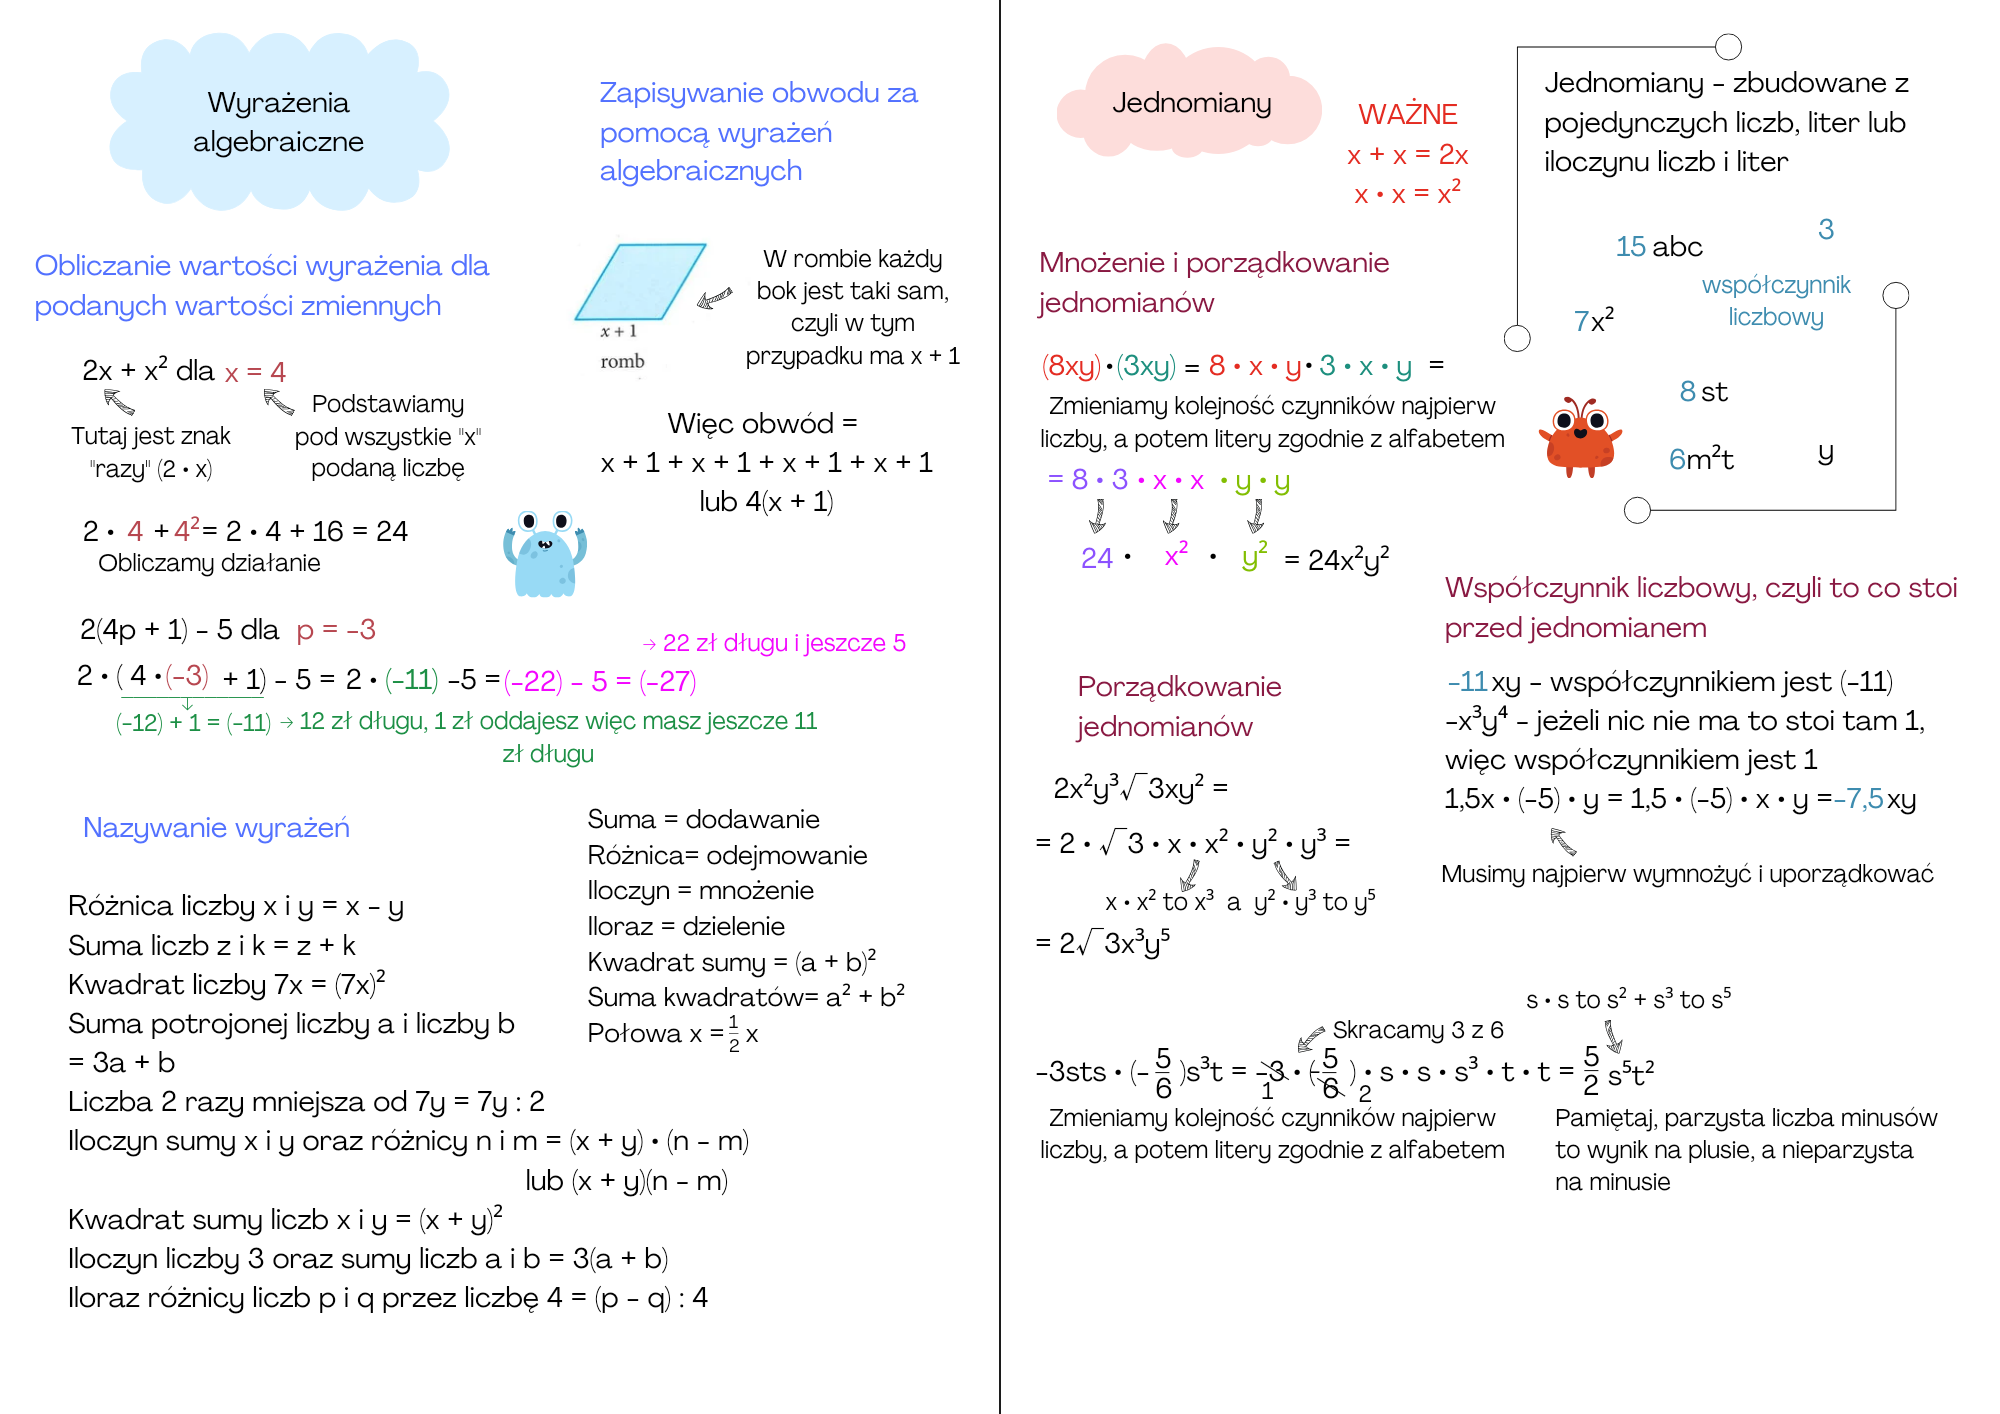 Wyrażenia
algebraiczne
Zapisywanie obwodu za
pomocą wyrażeń
algebraicznych
Obliczanie wartości wyrażenia dla
podanych wartości zmiennych
2x + x² dla x = 4
Tutaj jest znak
"razy" (2 • x)
Podstawiamy
pod wszystkie "x"
podaną liczbę
2 • 4 + 4² = 2 • 4 + 16 = 24
Obliczamy działanie
x + 1
romb
W rombie każdy
bok jest taki sam,
czyli w tym
przypadku ma x + 1
Więc obwód =
x + 1 + x + 1 + x + 1 + x + 1
lub 4(x + 1)
2(4p + 1) - 5 dla p = -3
→ 22 zł długu i jeszcze 5
2 • ( 4 • (-3) + 1) - 5 = 2 • (-11) -5 = (-22) - 5 = (-27)
(-12) + 1 = (-11) → 12 zł długu, 1 zł oddajesz więc masz jeszcze 11
zł długu
Nazywanie wyrażeń
Różnica liczby x i y = x - y
Suma liczb z i k = z + k
Kwadrat liczby 7x = (7x)²
Suma potrojonej liczby a i liczby b
= 3a + b
Liczba 2 razy mniejsza od 7y = 7y : 2
Iloczyn sumy x i y oraz różnicy n i m = (x + y) • (n - m)
lub (x + y)(n - m)
Kwadrat sumy liczb x i y = (x + y)²
Iloczyn liczby 3 oraz sumy liczb a i b = 3(a + b)
Iloraz różnicy liczb p i q przez liczbę 4 = (p - q) : 4
Suma = dodawanie
Różnica= odejmowanie
Iloczyn = mnożenie
Iloraz = dzielenie
Kwadrat sumy = (a + b)²
Suma kwadratów= a² + b²
Połowa x = 1/2 x
Jednomiany
WAŻNE
x + x = 2x
x • x = x²
Jednomiany - zbudowane z
pojedynczych liczb, liter lub
iloczynu liczb i liter
15 abc
3
współczynnik
liczbowy
7x²
8 st
6m²t
y
Mnożenie i porządkowanie
jednomianów
(8xy) • (3xy) = 8 • x • y • 3 • x • y =
Zmieniamy kolejność czynników najpierw
liczby, a potem litery zgodnie z alfabetem
= 8 • 3 • x • x • y • y
24 • x² • y² = 24x²y²
Współczynnik liczbowy, czyli to co stoi
przed jednomianem
-11xy - współczynnikiem jest (-11)
-x³y⁴ - jeżeli nic nie ma to stoi tam 1,
więc współczynnikiem jest 1
1,5x • (-5) • y = 1,5 • (-5) • x • y =-7,5xy
Musimy najpierw wymnożyć i uporządkować
Porządkowanie
jednomianów
2x²y³√3xy² =
= 2 • √3 • x • x² • y² • y³ =
x • x² to x³ a y² • y³ to y⁵
= 2√3x³y⁵
s • s to s² + s³ to s⁵
Skracamy 3 z 6
-3sts • (-5/6)s³t = -3 • (-5/6) • s • s • s³ • t • t = 5/2 s⁵t²
1 2
Zmieniamy kolejność czynników najpierw
liczby, a potem litery zgodnie z alfabetem
Pamiętaj, parzysta liczba minusów
to wynik na plusie, a nieparzysta
na minusie